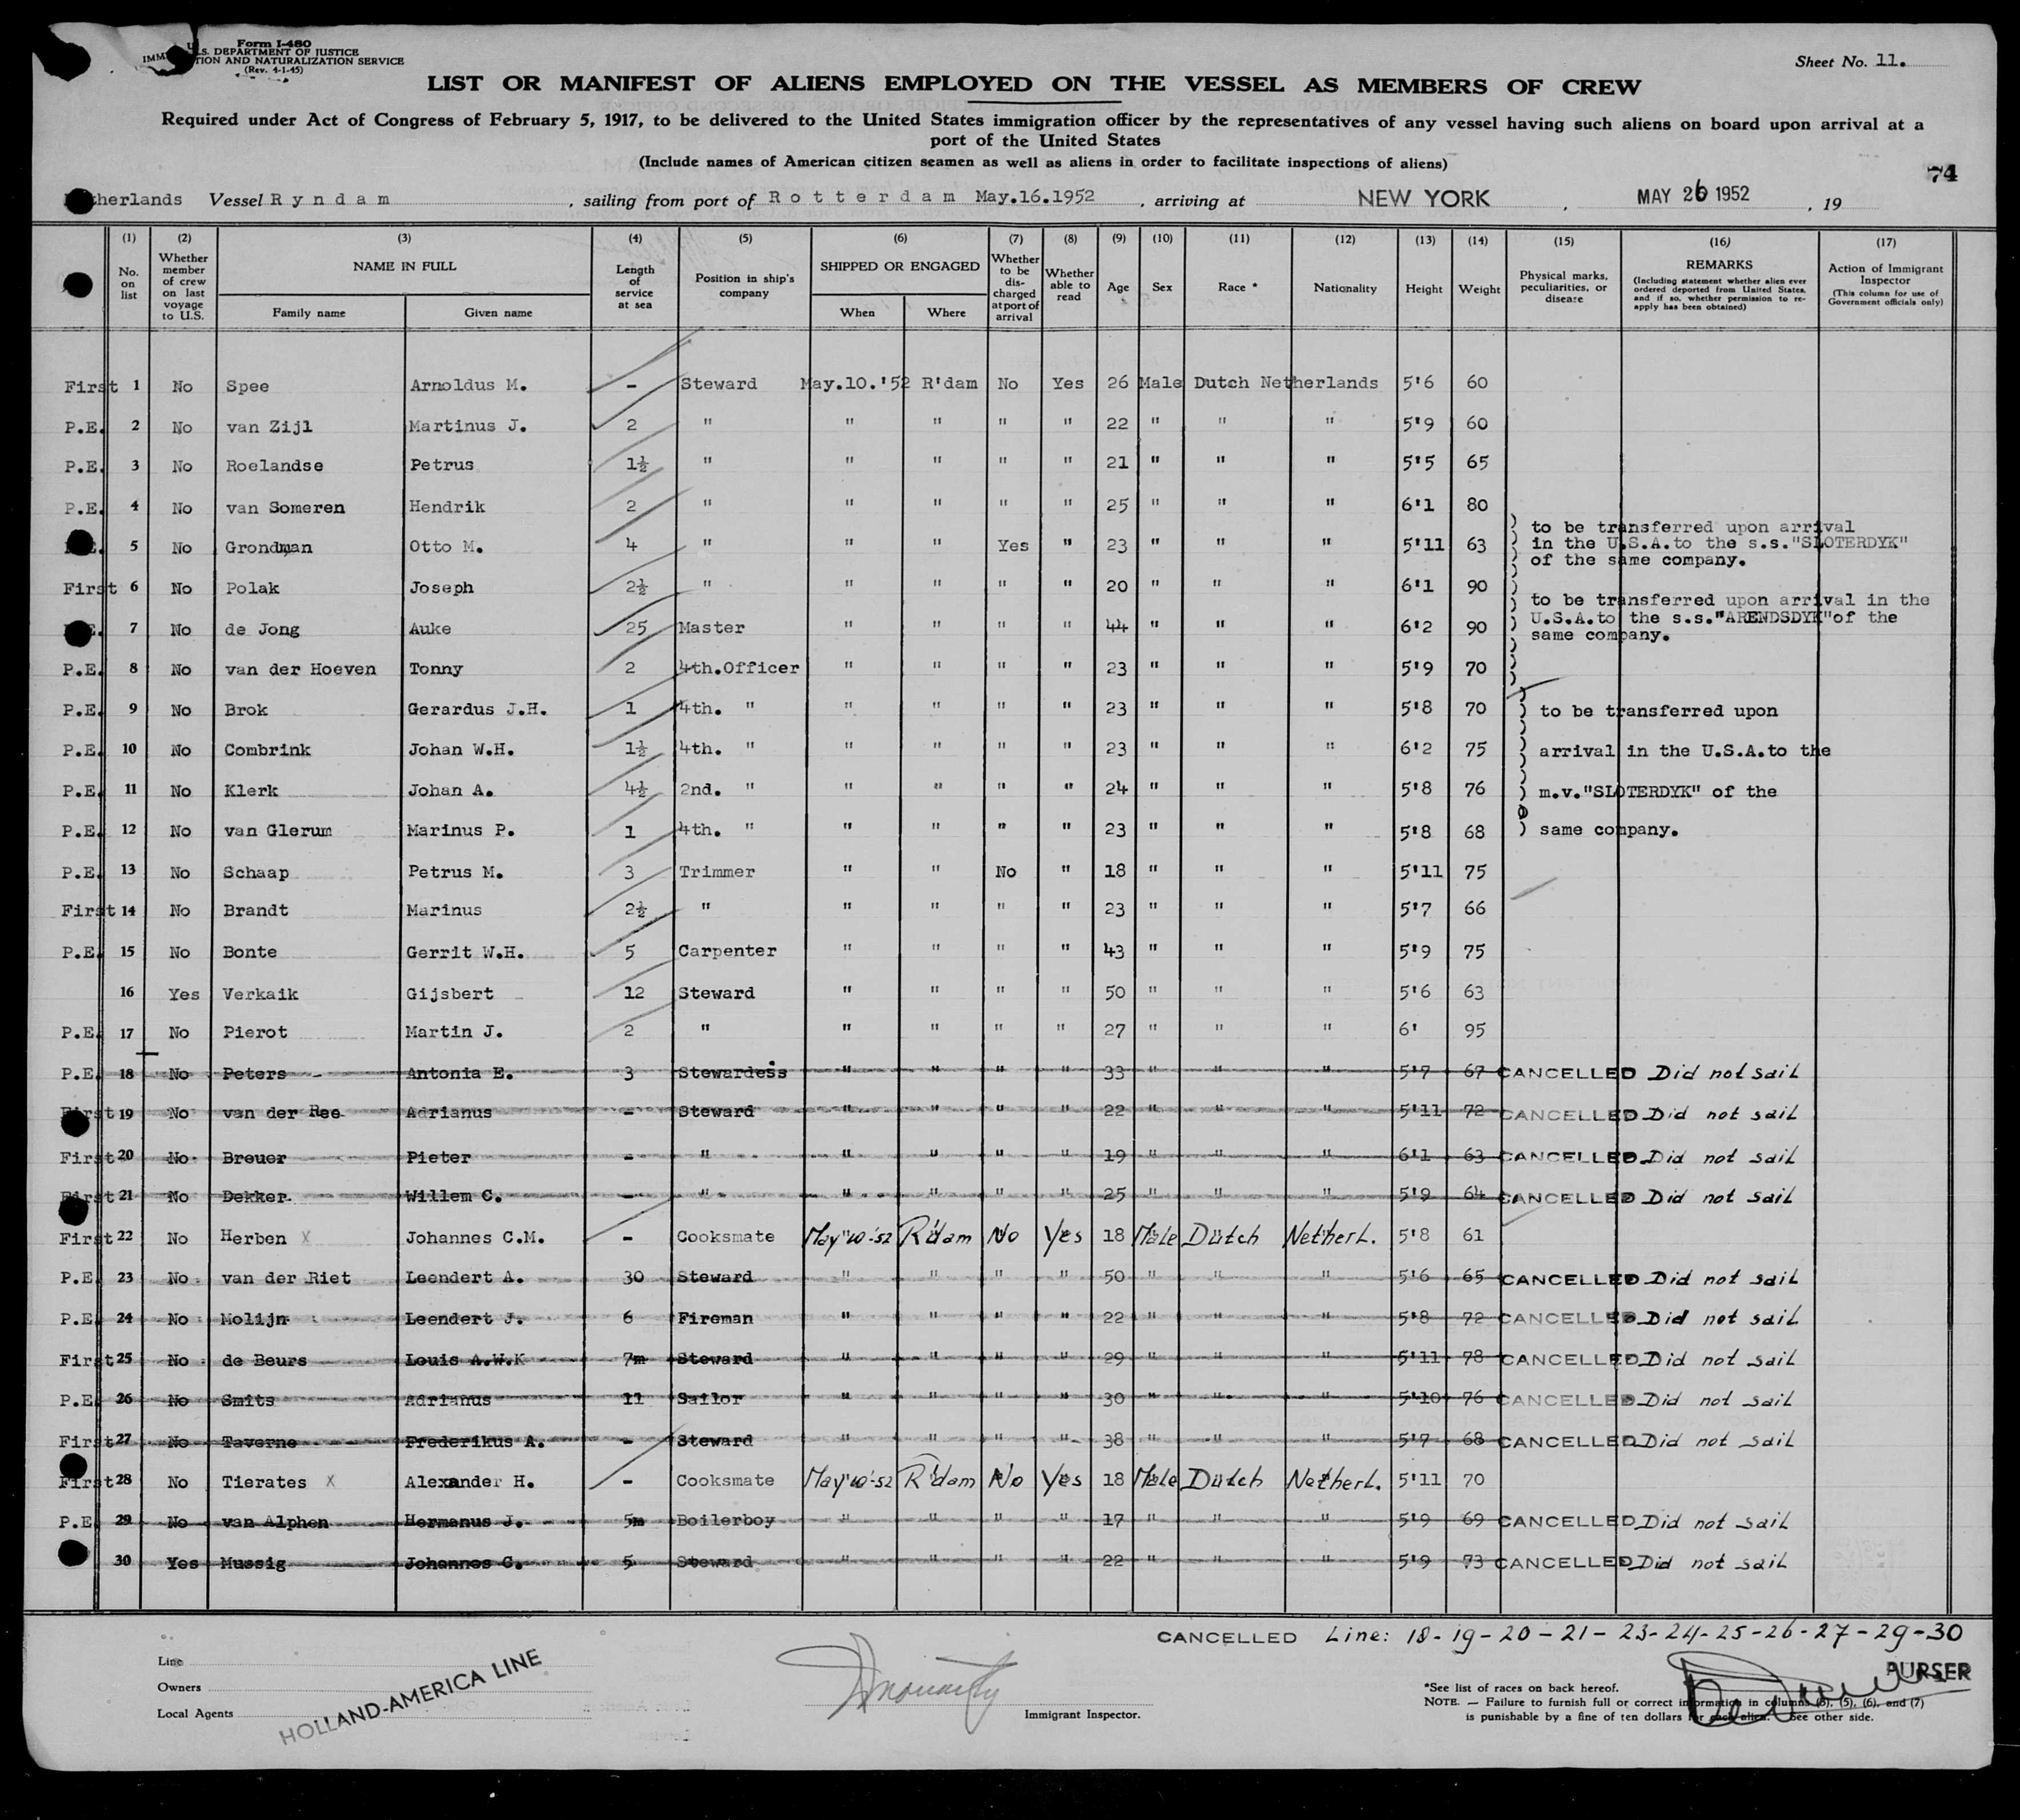 Form I-480
U.S. DEPARTMENT OF JUSTICE
IMM TION AND NATURALIZATION SERVICE
(Rev. 4-1-45)
Sheet No. 11.
LIST OR MANIFEST OF ALIENS EMPLOYED ON THE VESSEL AS MEMBERS OF CREW
Required under Act of Congress of February 5, 1917, to be delivered to the United States immigration officer by the representatives of any vessel having such aliens on board upon arrival at a
port of the United States
(Include names of American citizen seamen as well as aliens in order to facilitate inspections of aliens)
74
therlands Vessel Ryndam , sailing from port of Rotterdam May.16.1952 , arriving at NEW YORK , MAY 26 1952 , 19
(1) (2) (3) (4) (5) (6) (7) (8) (9) (10) (11) (12) (13) (14) (15) (16) (17)
No. on list
Whether member of crew on last voyage to U.S.
NAME IN FULL
Family name Given name
Length of service at sea
Position in ship's company
SHIPPED OR ENGAGED
When Where
Whether to be discharged at port of arrival
Whether able to read
Age
Sex
Race *
Nationality
Height
Weight
Physical marks, peculiarities, or disease
REMARKS
(Including statement whether alien ever ordered deported from United States, and if so, whether permission to re-apply has been obtained)
Action of Immigrant Inspector
(This column for use of Government officials only)
First 1 No Spee Arnoldus M. - Steward May.10.'52 R'dam No Yes 26 Male Dutch Netherlands 5'6 60
P.E. 2 No van Zijl Martinus J. 2 " " " " " 22 " " " 5'9 60
P.E. 3 No Roelandse Petrus 1½ " " " " " 21 " " " 5'5 65
P.E. 4 No van Someren Hendrik 2 " " " " " 25 " " " 6'1 80
E. 5 No Grondman Otto M. 4 " " " Yes " 23 " " " 5'11 63
to be transferred upon arrival
in the U.S.A.to the s.s."SLOTERDYK"
of the same company.
First 6 No Polak Joseph 2½ " " " " " 20 " " " 6'1 90
E. 7 No de Jong Auke 25 Master " " " " 44 " " " 6'2 90
to be transferred upon arrival in the
U.S.A.to the s.s."ARENDSDYK"of the
same company.
P.E. 8 No van der Hoeven Tonny 2 4th.Officer " " " " 23 " " " 5'9 70
P.E. 9 No Brok Gerardus J.H. 1 4th. " " " " " 23 " " " 5'8 70 to be transferred upon
P.E. 10 No Combrink Johan W.H. 1½ 4th. " " " " " 23 " " " 6'2 75 arrival in the U.S.A.to the
P.E. 11 No Klerk Johan A. 4½ 2nd. " " " " " 24 " " " 5'8 76 m.v."SLOTERDYK" of the
P.E. 12 No van Glerum Marinus P. 1 4th. " " " " " 23 " " " 5'8 68 same company.
P.E. 13 No Schaap Petrus M. 3 Trimmer " " No " 18 " " " 5'11 75
First 14 No Brandt Marinus 2½ " " " " " 23 " " " 5'7 66
P.E. 15 No Bonte Gerrit W.H. 5 Carpenter " " " " 43 " " " 5'9 75
16 Yes Verkaik Gijsbert 12 Steward " " " " 50 " " " 5'6 63
P.E. 17 No Pierot Martin J. 2 " " " " " 27 " " " 6' 95
P.E. 18 No Peters Antonia E. 3 Stewardess " " " " 33 " " " 5'7 67 CANCELLED Did not sail
First 19 No van der Ree Adrianus - Steward " " " " 22 " " " 5'11 72 CANCELLED Did not sail
First 20 No Breuer Pieter - " " " " " 19 " " " 6'1 63 CANCELLED Did not sail
First 21 No Dekker Willem C. - " " " " " 25 " " " 5'9 64 CANCELLED Did not sail
First 22 No Herben X Johannes C.M. - Cooksmate May 10-52 R'dam No Yes 18 Male Dutch Netherl. 5'8 61
P.E. 23 No van der Riet Leendert A. 30 Steward " " " " 50 " " " 5'6 65 CANCELLED Did not sail
P.E. 24 No Molijn Leendert J. 6 Fireman " " " " 22 " " " 5'8 72 CANCELLED Did not sail
First 25 No de Beurs Louis A.W.K 7m Steward " " " " 29 " " " 5'11 78 CANCELLED Did not sail
P.E. 26 No Smits Adrianus 11 Sailor " " " " 30 " " " 5'10 76 CANCELLED Did not sail
First 27 No Taverne Frederikus A. - Steward " " " " 38 " " " 5'7 68 CANCELLED Did not sail
First 28 No Tierates X Alexander H. - Cooksmate May 10-52 R'dam No Yes 18 Male Dutch Netherl. 5'11 70
P.E. 29 No van Alphen Hermanus J. 5m Boilerboy " " " " 17 " " " 5'9 69 CANCELLED Did not sail
30 Yes Mussig Johannes C. 5 Steward " " " " 22 " " " 5'9 73 CANCELLED Did not sail
CANCELLED Line: 18-19-20-21-23-24-25-26-27-29-30
Line
Owners
Local Agents
HOLLAND-AMERICA LINE
Immigrant Inspector.
PURSER
*See list of races on back hereof.
NOTE. — Failure to furnish full or correct information in columns (3), (5), (6), and (7)
is punishable by a fine of ten dollars for each alien. See other side.